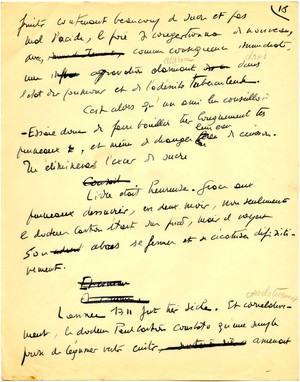 15
fruits contenant beaucoup de sucre et pas
mal d'acide, le foie se congestionna de nouveau,
avec, comme conséquence immédiate,
une aggravation dans
l'état des poumons et de l'adénite tuberculeuse.
C'est alors qu'un ami lui conseilla :
- Essaie donc de faire bouillir longuement tes
pruneaux, et même de changer leur eau de cuisson.
Tu élimineras l'excès de sucre
Conseil
L'idée était heureuse. Grâce aux
pruneaux dessucrés, en deux mois, non seulement
le docteur Carton était sur pied, mais il voyait
son abcès se fermer et se cicatriser définiti-
vement.
L'année 1911 fut très sèche. Et corrélative-
ment, le docteur Paul Carton constata qu'une simple
prise de légumes verts cuits, amenait